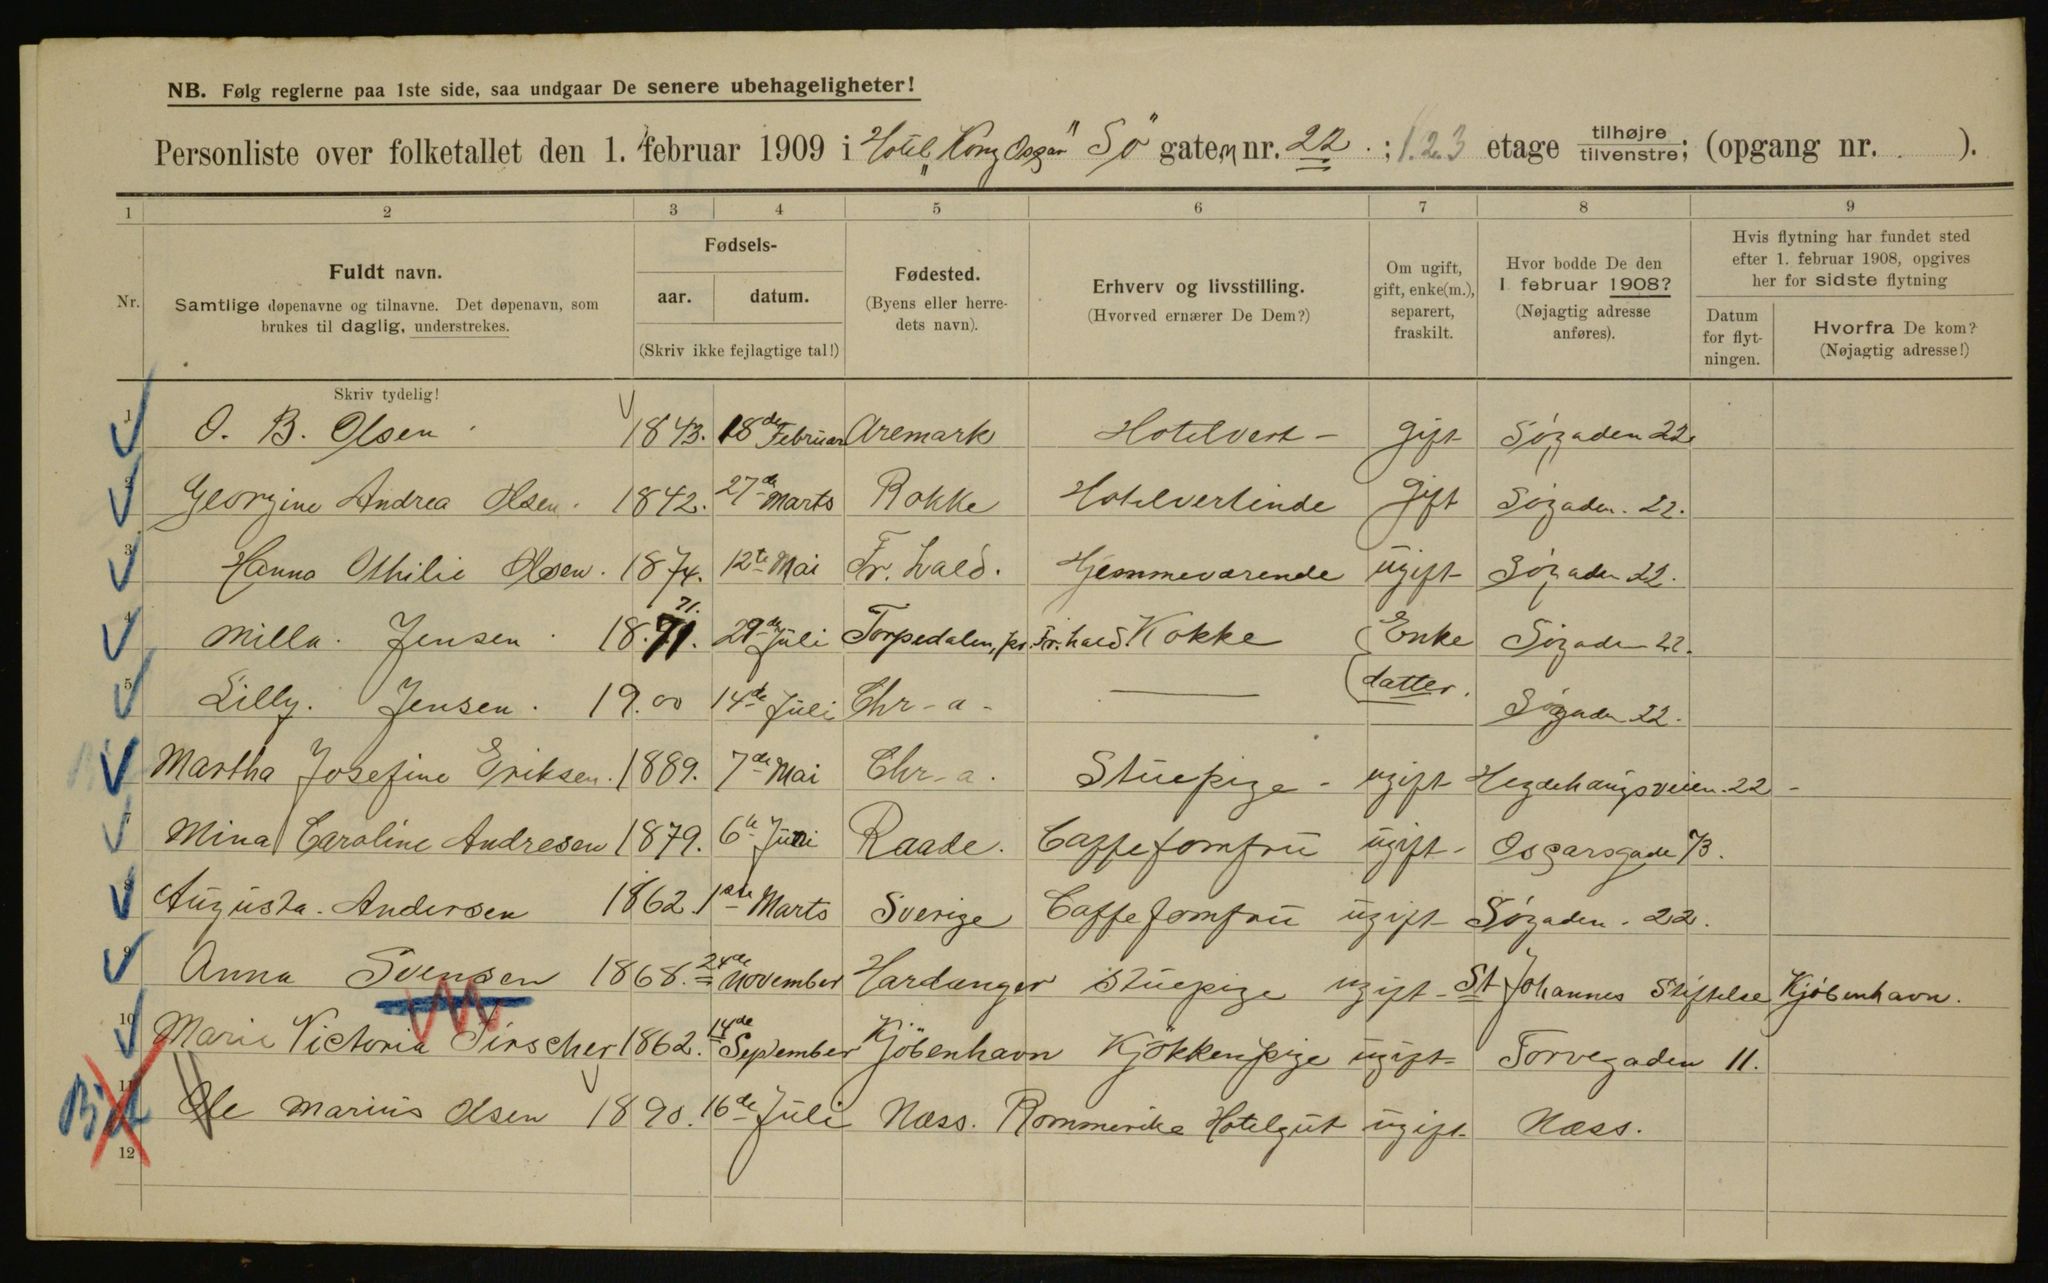 NB. Følg reglerne paa 1ste side, saa undgaar De senere ubehageligheter!
Personliste over folketallet den 1. februar 1909 i Hotel "Kong Oscar" Sø gaten nr. 22. ; 1.2.3 etage tilhøjre tilvenstre; (opgang nr. ).
1 2 3 4 5 6 7 8 9
Nr.
Fuldt navn.
Samtlige døpenavne og tilnavne. Det døpenavn, som
brukes til daglig, understrekes.
Fødsels-
aar. datum.
(Skriv ikke fejlagtige tal!)
Fødested.
(Byens eller herre-
dets navn).
Erhverv og livsstilling.
(Hvorved ernærer De Dem?)
Om ugift,
gift, enke(m.),
separert,
fraskilt.
Hvor bodde De den
1. februar 1908?
(Nøjagtig adresse
anføres).
Hvis flytning har fundet sted
efter 1. februar 1908, opgives
her for sidste flytning
Datum
for flyt-
ningen.
Hvorfra De kom?
(Nøjagtig adresse!)
Skriv tydelig!
1 O. B. Olsen 1843. 18de Februar Aremark Hotelvert - gift Søgaden 22.
2 Georgine Andrea Olsen. 1842. 27de Marts Rokke Hotelvertinde gift Søgaden. 22.
3 Hanna Othilie Olsen. 1874. 12te Mai Fr. hald. Hjemmeværende ugift Søgaden 22.
71.
4 Milla. Jensen. 18.71. 29de Juli Torpedalen, pr. Fr. hald. Kokke Enke Søgaden 22.
5 Lilly. Jensen. 19.00 14de Juli Chr-a- datter. Søgaden 22.
Martha Josefine Eriksen. 1889. 7de Mai Chr-a. Stuepige - ugift Hegdehaugsveien. 22 -
7 Mina Caroline Andresen 1879. 6te Juni Raade. Caffefomfru ugift - Oscarsgade 73.
8 Augusta. Andersen 1862. 1ste Marts Sverige Caffefomfru ugift Søgaden. 22.
9 Anna Svensen 1868. 24de November Hardanger Stuepige ugift - St Johannes Stiftelse Kjøbenhavn.
10 Marie Victoria Tirscher 1862. 14de September Kjöbenhavn Kjökkenpige ugift- Torvegaden 11.
11 Ole Marius Olsen 1890. 16de Juli Næss. Rommerike Hotelgut ugift Næss.
12